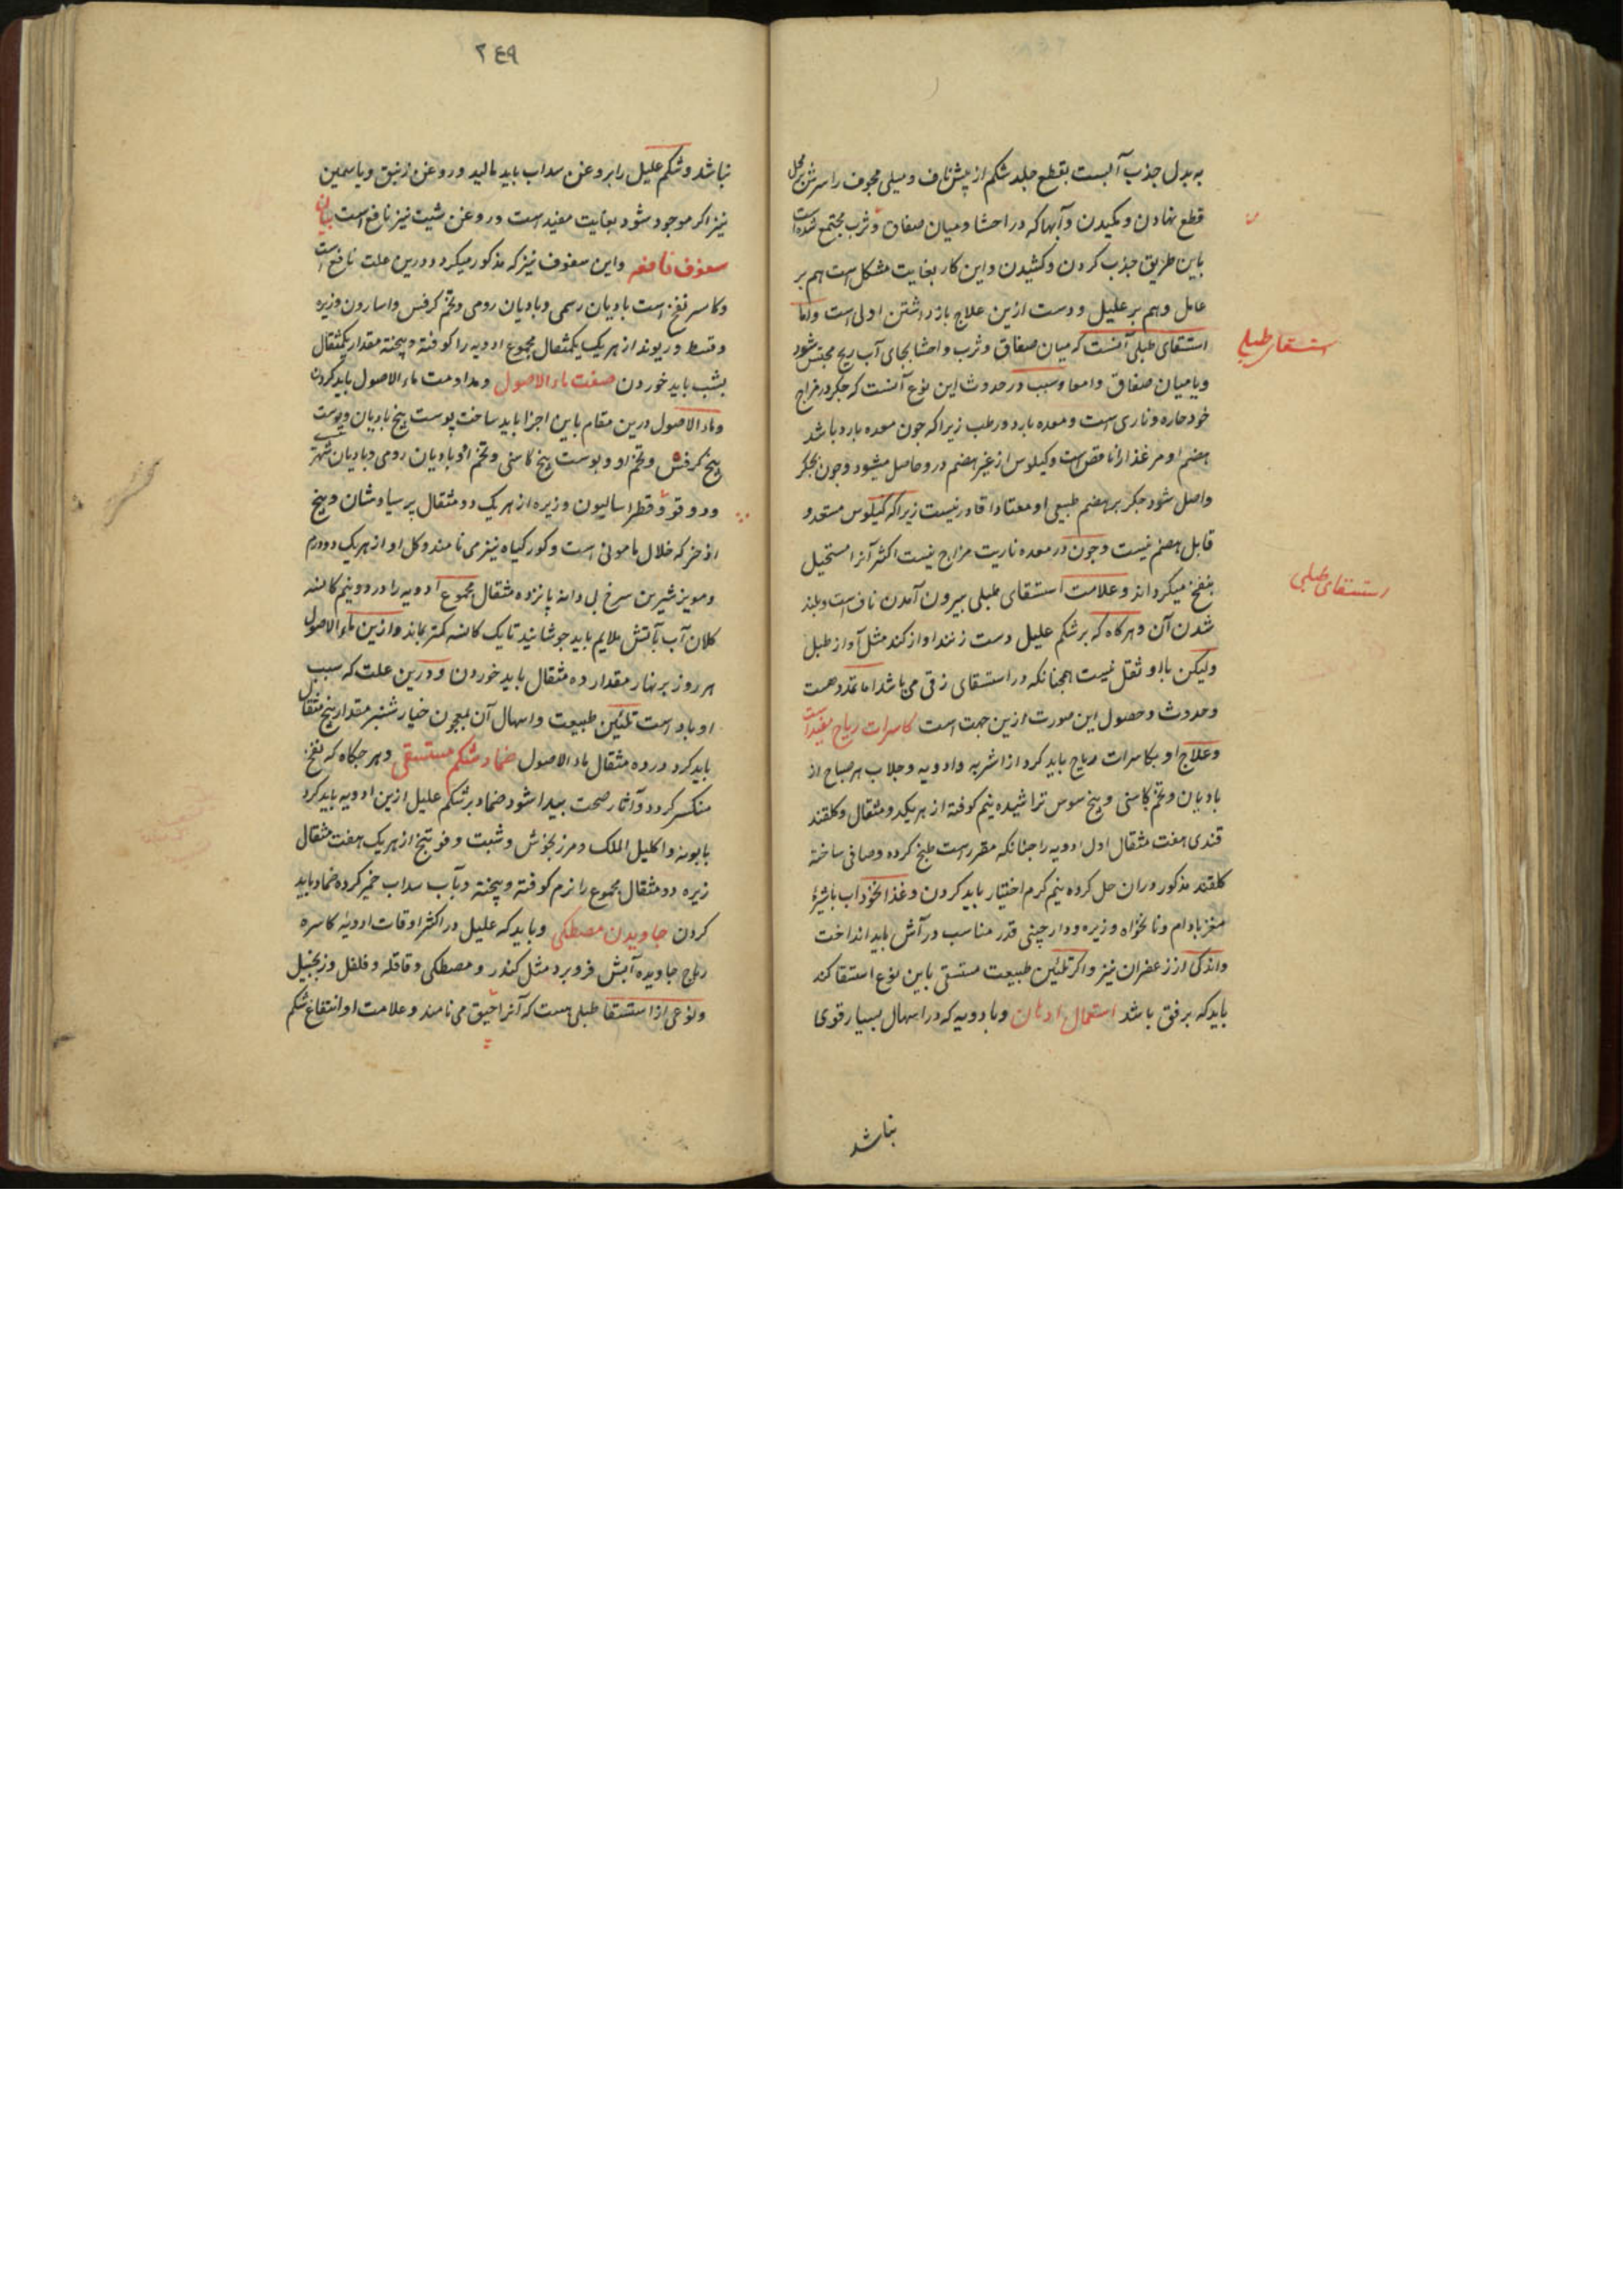 به بدل جذب آبست بقطع جلد شکم از پیش ناف و میلی مجوف را سرش بر محل
قطع نهادن و مکیدن و آبها که در احشا و میان صفاق و ثرب مجتمع شده است
باین طریق جذب کردن و کشیدن و این کار بغایت مشکل است هم بر
عامل و هم بر علیل و دست ازین علاج باز داشتن اولی است و اما
استسقای طبلی
استسقای طبلی آنست که میان صفاق و ثرب و احشا بجای آب ریح محتبس شود
و یا میان صفاق و امعا و سبب در حدوث این نوع آنست که جکر در مزاج
خود حاره و ناری است و معده بارد و رطب زیرا که جون معده بارد باشد
هضم او مر غذا را ناقص است و کیلوس از غیر هضم درو حاصل میشود و جون بجکر
واصل شود جکر بر هضم طبیعی او معتادا قادر نیست زیرا که کیلوس مستعد و
قابل هضم نیست و جون در معده ناریت مزاج نیست اکثر آنرا مستحیل
استسقای طبلی
بنفخ میکرداند و علامت استسقای طبلی بیرون آمدن ناف است و بلند
شدن آن و هرکاه که بر شکم علیل دست زنند اواز کند مثل آواز طبل
ولیکن با او ثقل نیست همجنانکه در استسقای زقی می باشد اما تمدد هست
و حدوث و حصول این صورت ازین جهت است کاسرات ریاح مفید است
و علاج او بکاسرات ریاح باید کرد از اشربه و ادویه و جلاب هر صباح از
بادیان و تخم کاسنی و بیخ سوس تراشیده نیم کوفته از هر یک دو مثقال و کلقند
قندی هفت مثقال اول ادویه را جنانکه مقرر است طبخ کرده و صافی ساخته
کلقند مذکور در ان حل کرده نیم کرم اختیار باید کردن و غذا نخوداب با شیرهٔ
مغز بادام و نانخواه و زیره و دارچینی قدر مناسب در آش باید انداخت
و اندکی از زعفران نیز و اکر تلئین طبیعت مستسقی باین نوع استسقا کند
باید که برفق باشد استعمال ادهان و بادویه که در اسهال بسیار قوی
نباشد
۲٤۹
نباشد و شکم علیل را بروغن سداب باید مالید و روغن زنبق و یاسمین
نیز اکر موجود شود بغایت مفید است و روغن شبت نیز نافع است بیان
سفوف نافعه و این سفوف نیز که مذکور میکردد درین علت نافع است
و کاسر نفخ است بادیان رسمی و بادیان رومی و تخم کرفس و اسارون و زیره
و قسط و ریوند از هر یک یکمثقال مجموع ادویه را کوفته و پیخته مقدار یکمثقال
بشب باید خوردن صفت ماء الاصول و مداومت ماء الاصول باید کردن
و ماء الاصول درین مقام باین اجزا باید ساخت پوست بیخ بادیان و پوست
بیخ کرفس و تخم او و پوست بیخ کاسنی و تخم او و بادیان رومی و بادیان
و دوقو و قطراسالیون و زیره از هر یک دو مثقال پرسیاوشان و بیخ
اذخر که خلال مامونی است و کورکیاه نیز می نامند و کل او از هر یک دو درم
و مویز شیرین سرخ بی دانه پانزده مثقال مجموع ادویه را در دو نیم کاسه
کلان آب بآتش ملایم باید جوشانید تا یک کاسه کمتر بماند و ازین ماء الاصول
هر روز بر نهار مقدار ده مثقال باید خوردن و درین علت که سبب
او باد است تلئین طبیعت و اسهال آن بمعجون خیارشنبر مقدار پنج مثقال
باید کرد در ده مثقال ماء الاصول ضماد شکم مستسقی و هر جکاه که نفخ
منکسر کردد و آثار صحت پیدا شود ضماد بر شکم علیل ازین ادویه باید کرد
بابونه و اکلیل الملک و مرزنجوش و شبت و فوتنج از هر یک هفت مثقال
زیره دو مثقال مجموع را نرم کوفته و پیخته و بآب سداب خمیر کرده ضماد باید
کردن جاویدن مصطکی و باید که علیل در اکثر اوقات ادویهٔ کاسره
ریاح جاویده آبش فرو برد مثل کندر و مصطکی و قاقله و فلفل و زنجبیل
و نوعی از استسقا طبلی هست که آنرا می نامند و علامت او انتفاخ شکم